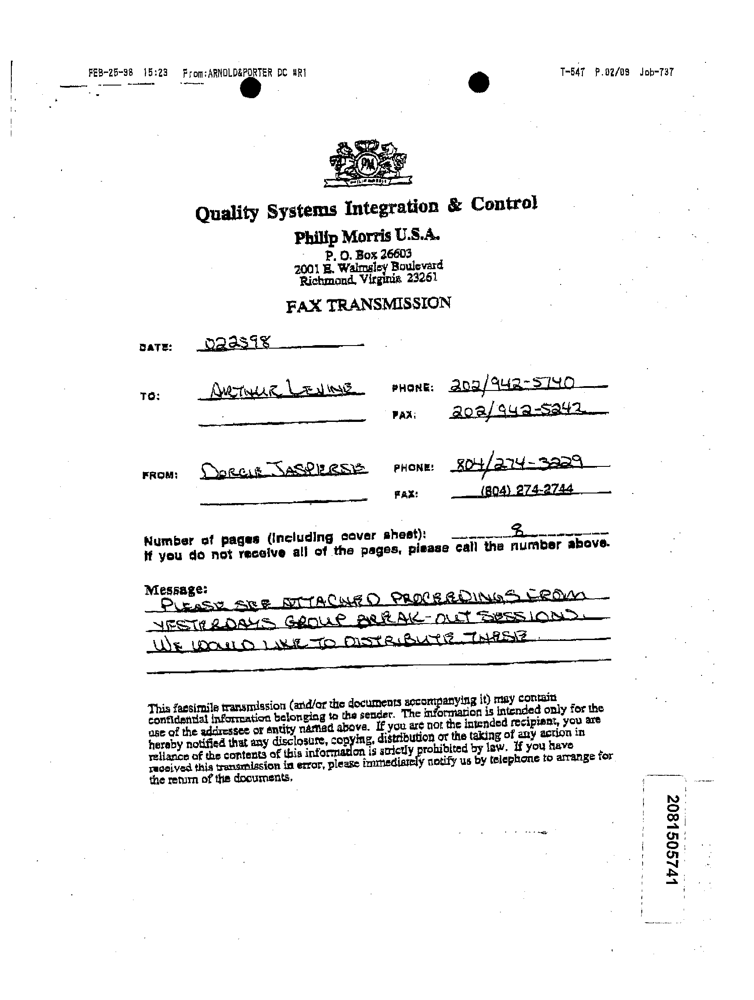 FEB-25-98 15:23 From:ARNOLD&PORTER DC #R1 T-547 P.02/09 Job-737
PM
Quality Systems Integration & Control
Philip Morris U.S.A.
P. O. Box 26603
2001 E. Walmsley Boulevard
Richmond, Virginia 23261
FAX TRANSMISSION
DATE: 022598
TO: ARTHUR LEVINE PHONE: 202/942-5740
FAX: 202/942-5242
FROM: PHONE: 804/274-3229
FAX: (804) 274-2744
Number of pages (including cover sheet): 8
If you do not receive all of the pages, please call the number above.
Message:
PLEASE SEE ATTACHED PROCEEDINGS FROM
YESTERDAYS GROUP BREAK-OUT SESSIONS.
WE WOULD LIKE TO DISTRIBUTE THESE.
This facsimile transmission (and/or the documents accompanying it) may contain
confidential information belonging to the sender. The information is intended only for the
use of the addressee or entity named above. If you are not the intended recipient, you are
hereby notified that any disclosure, copying, distribution or the taking of any action in
reliance of the contents of this information is strictly prohibited by law. If you have
received this transmission in error, please immediately notify us by telephone to arrange for
the return of the documents.
2081505741